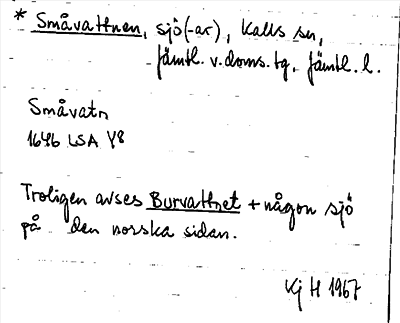 * Småvattnen, sjö(-ar), Kalls sn,
Jämtl. v. doms. tg, Jämtl. l.
Småvatn
1646 LSA Y8
Troligen avses Burvattnet + någon sjö
på den norska sidan.
Kj H 1967